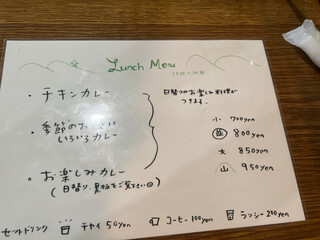 Lunch Menu
・チキンカレー
・季節の
いろいろカレー
・お楽しみカレー
日替りのお楽しみ料理が
つきます。
小 700yen
並 800yen
大 850yen
山 950yen
セットドリンク
チャイ 50yen
コーヒー 100yen
ラッシー 200yen